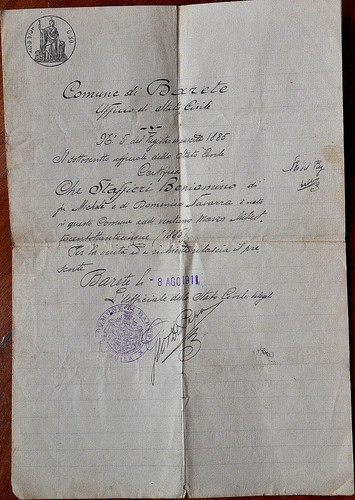 Comune di Barete
Ufficio di Stato Civile
N.º 5 del Registro 1885
Il sottoscritto ufficiale dello Stato Civile
Certifica
Che Staffieri Beniamino di
fu Michele e di Domenica Navarra è nato
in questo Comune addì ventuno marzo Milleot
tocentottantacinque (1885)
Per la verità si rilascia il pre
sente
Barete li - 8 AGO 1911
L'ufficiale dello Stato Civile delegato